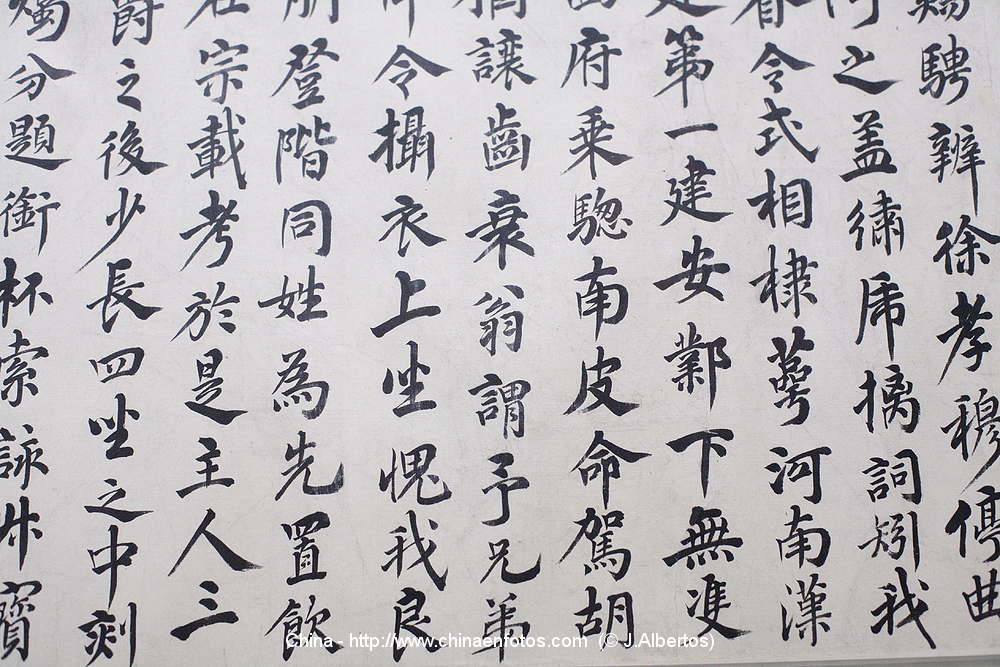 騁辨徐孝穆停曲
之盖繡席摛詞矧我
令式相棣萼河南漢
第一建安鄴下無雙
府乘驄南皮命駕胡
讓齒衰翁謂予兄弟
令攝衣上坐愧我良
朋登階同姓為先置飲
在宗載考於是主人三
爵之後少長四坐之中刻
燭分題銜杯索詠寳
China - http://www.chinaenfotos.com (© J.Albertos)